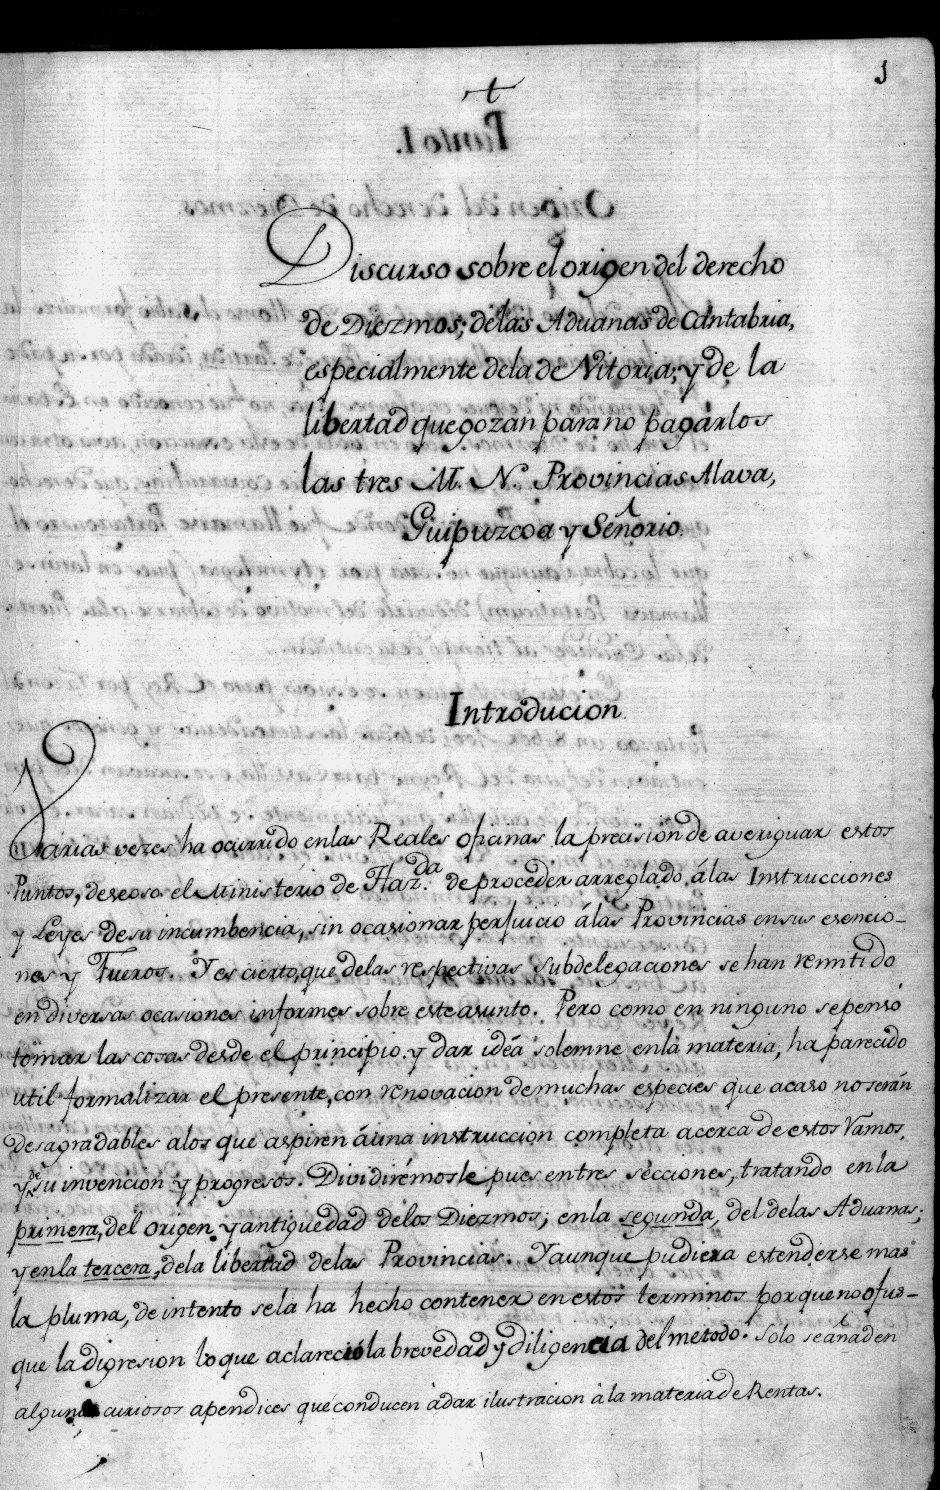 1
Discurso sobre el origen del derecho
de Diezmos; delas Aduanas de Cantabria,
especialmente dela de Vitoria; y de la
libertad que gozan para no pagarlos
las tres M. N. Provincias Alava,
Guipuzcoa y Señorio.
Introducion.
Varias vezes ha ocurrido enlas Reales oficinas la precision de averiguar estos
Puntos, deseoso el Ministerio de Haz.da de proceder arreglado álas Instrucciones
y Leyes desu incumbencia, sin ocasionar perjuicio álas Provincias ensus esencio-
nes y Fueros. Y es cierto, que delas respectivas Subdelegaciones se han remitido
en diversas ocasiones informes sobre este asunto. Pero como en ninguno sepensó
tomar las cosas desde el principio, y dar idéa solemne enla materia, ha parecido
util formalizar el presente, con renovacion de muchas especies que acaso no serán
desagradables alos que aspiren áuna instruccion completa acerca de estos Ramos,
y de su invencion y progresos. Dividirémosle pues entres secciones, tratando enla
primera, del origen y antiguedad delos Diezmos; enla segunda, del delas Aduanas;
y enla tercera, dela libertad delas Provincias. Yaunque pudiera estenderse mas
la pluma, de intento sela ha hecho contener en estos terminos porque no ofus-
que la digresion lo que aclareció la brevedad y diligencia del metodo. Solo se añaden
algunos curiosos apendices que conducen á dar ilustracion á la materia de Rentas.